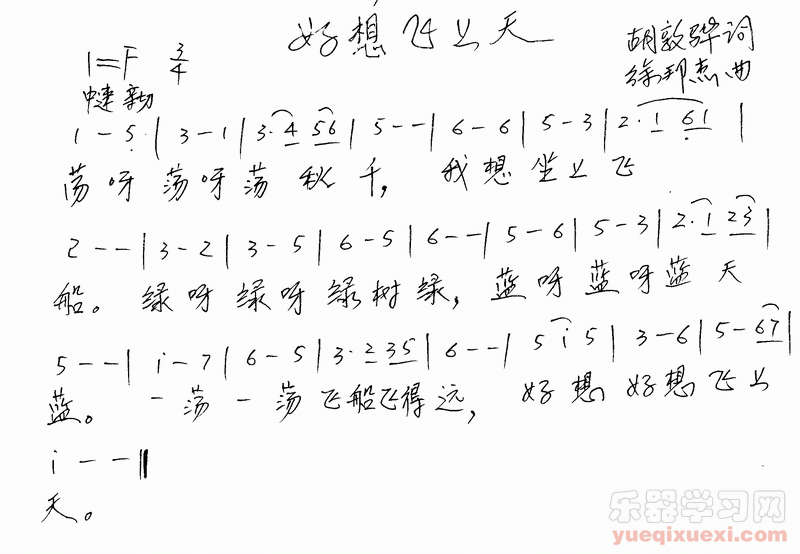 好想飞上天
1=F 3/4
胡敦骅词
徐邦杰曲
1 - 5̣ | 3 - 1 | 3· 4 5 6 | 5 - - | 6 - 6 | 5 - 3 | 2· 1 6̣ 1 |
荡呀荡呀荡秋千，我想坐上飞
2 - - | 3 - 2 | 3 - 5 | 6 - 5 | 6 - - | 5 - 6 | 5 - 3 | 2· 1 2 3 |
船。绿呀绿呀绿树绿，蓝呀蓝呀蓝天
5 - - | i - 7 | 6 - 5 | 3· 2 3 5 | 6 - - | 5 i 5 | 3 - 6 | 5 - 6 7 |
蓝。一荡一荡飞船飞得远，好想好想飞上
i - - ‖
天。
乐器学习网
yueqixuexi.com